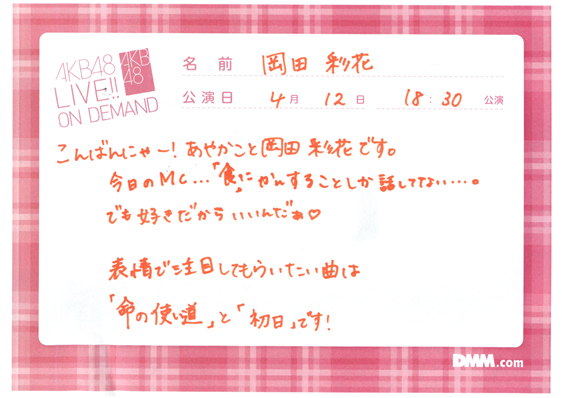 AKB48
LIVE!!
ON DEMAND
AKB
48
名前 岡田 彩花
公演日 4月 12日 18:30 公演
こんばんにゃー!あやかこと岡田 彩花です。
今日のMC…「食」にかんすることしか話してない…。
でも好きだからいいんだぁ♡
表情で注目してもらいたい曲は
「命の使い道」と「初日」です!
DMM.com